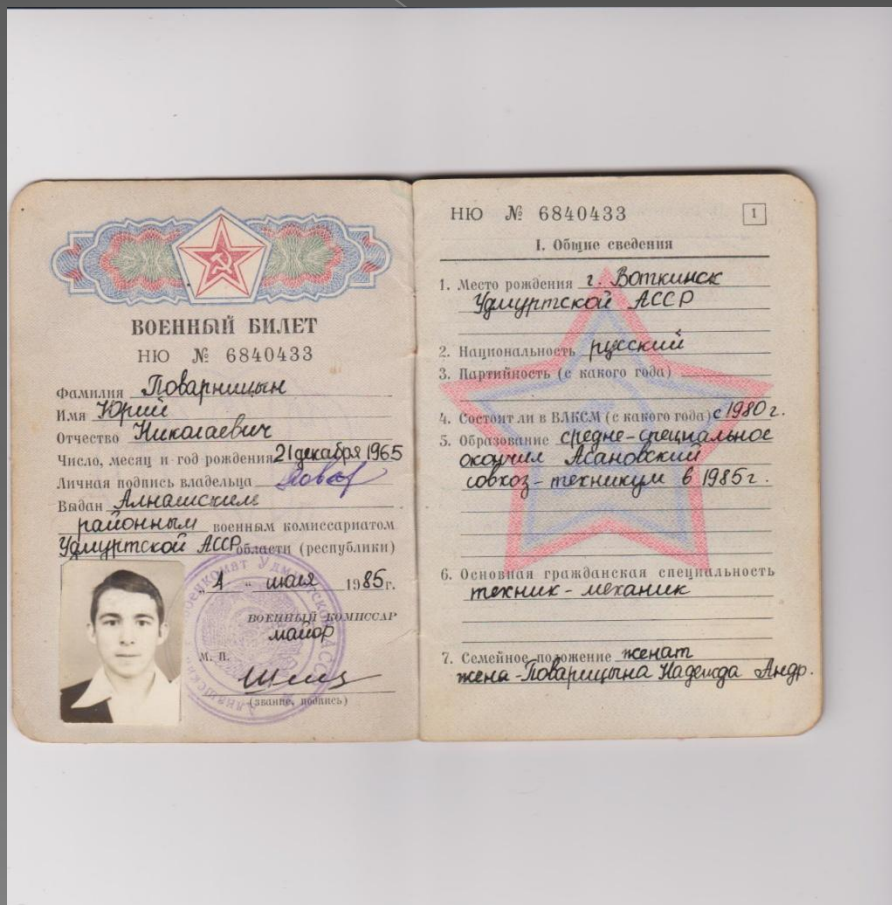 ВОЕННЫЙ БИЛЕТ
НЮ № 6840433
Фамилия Поварницын
Имя Юрий
Отчество Николаевич
Число, месяц и год рождения 21 декабря 1965
Личная подпись владельца Повар
Выдан Алнашским
районным военным комиссариатом
Удмуртской АССР области (республики)
„1“ июля 1985 г.
ВОЕННЫЙ КОМИССАР
майор
М. П.
(звание, подпись)
НЮ № 6840433
1
I. Общие сведения
1. Место рождения г. Воткинск
Удмуртской АССР
2. Национальность русский
3. Партийность (с какого года)
4. Состоит ли в ВЛКСМ (с какого года) с 1980 г.
5. Образование средне-специальное
окончил Асановский
совхоз-техникум в 1985 г.
6. Основная гражданская специальность
техник-механик
7. Семейное положение женат
жена-Поварницына Надежда Андр.